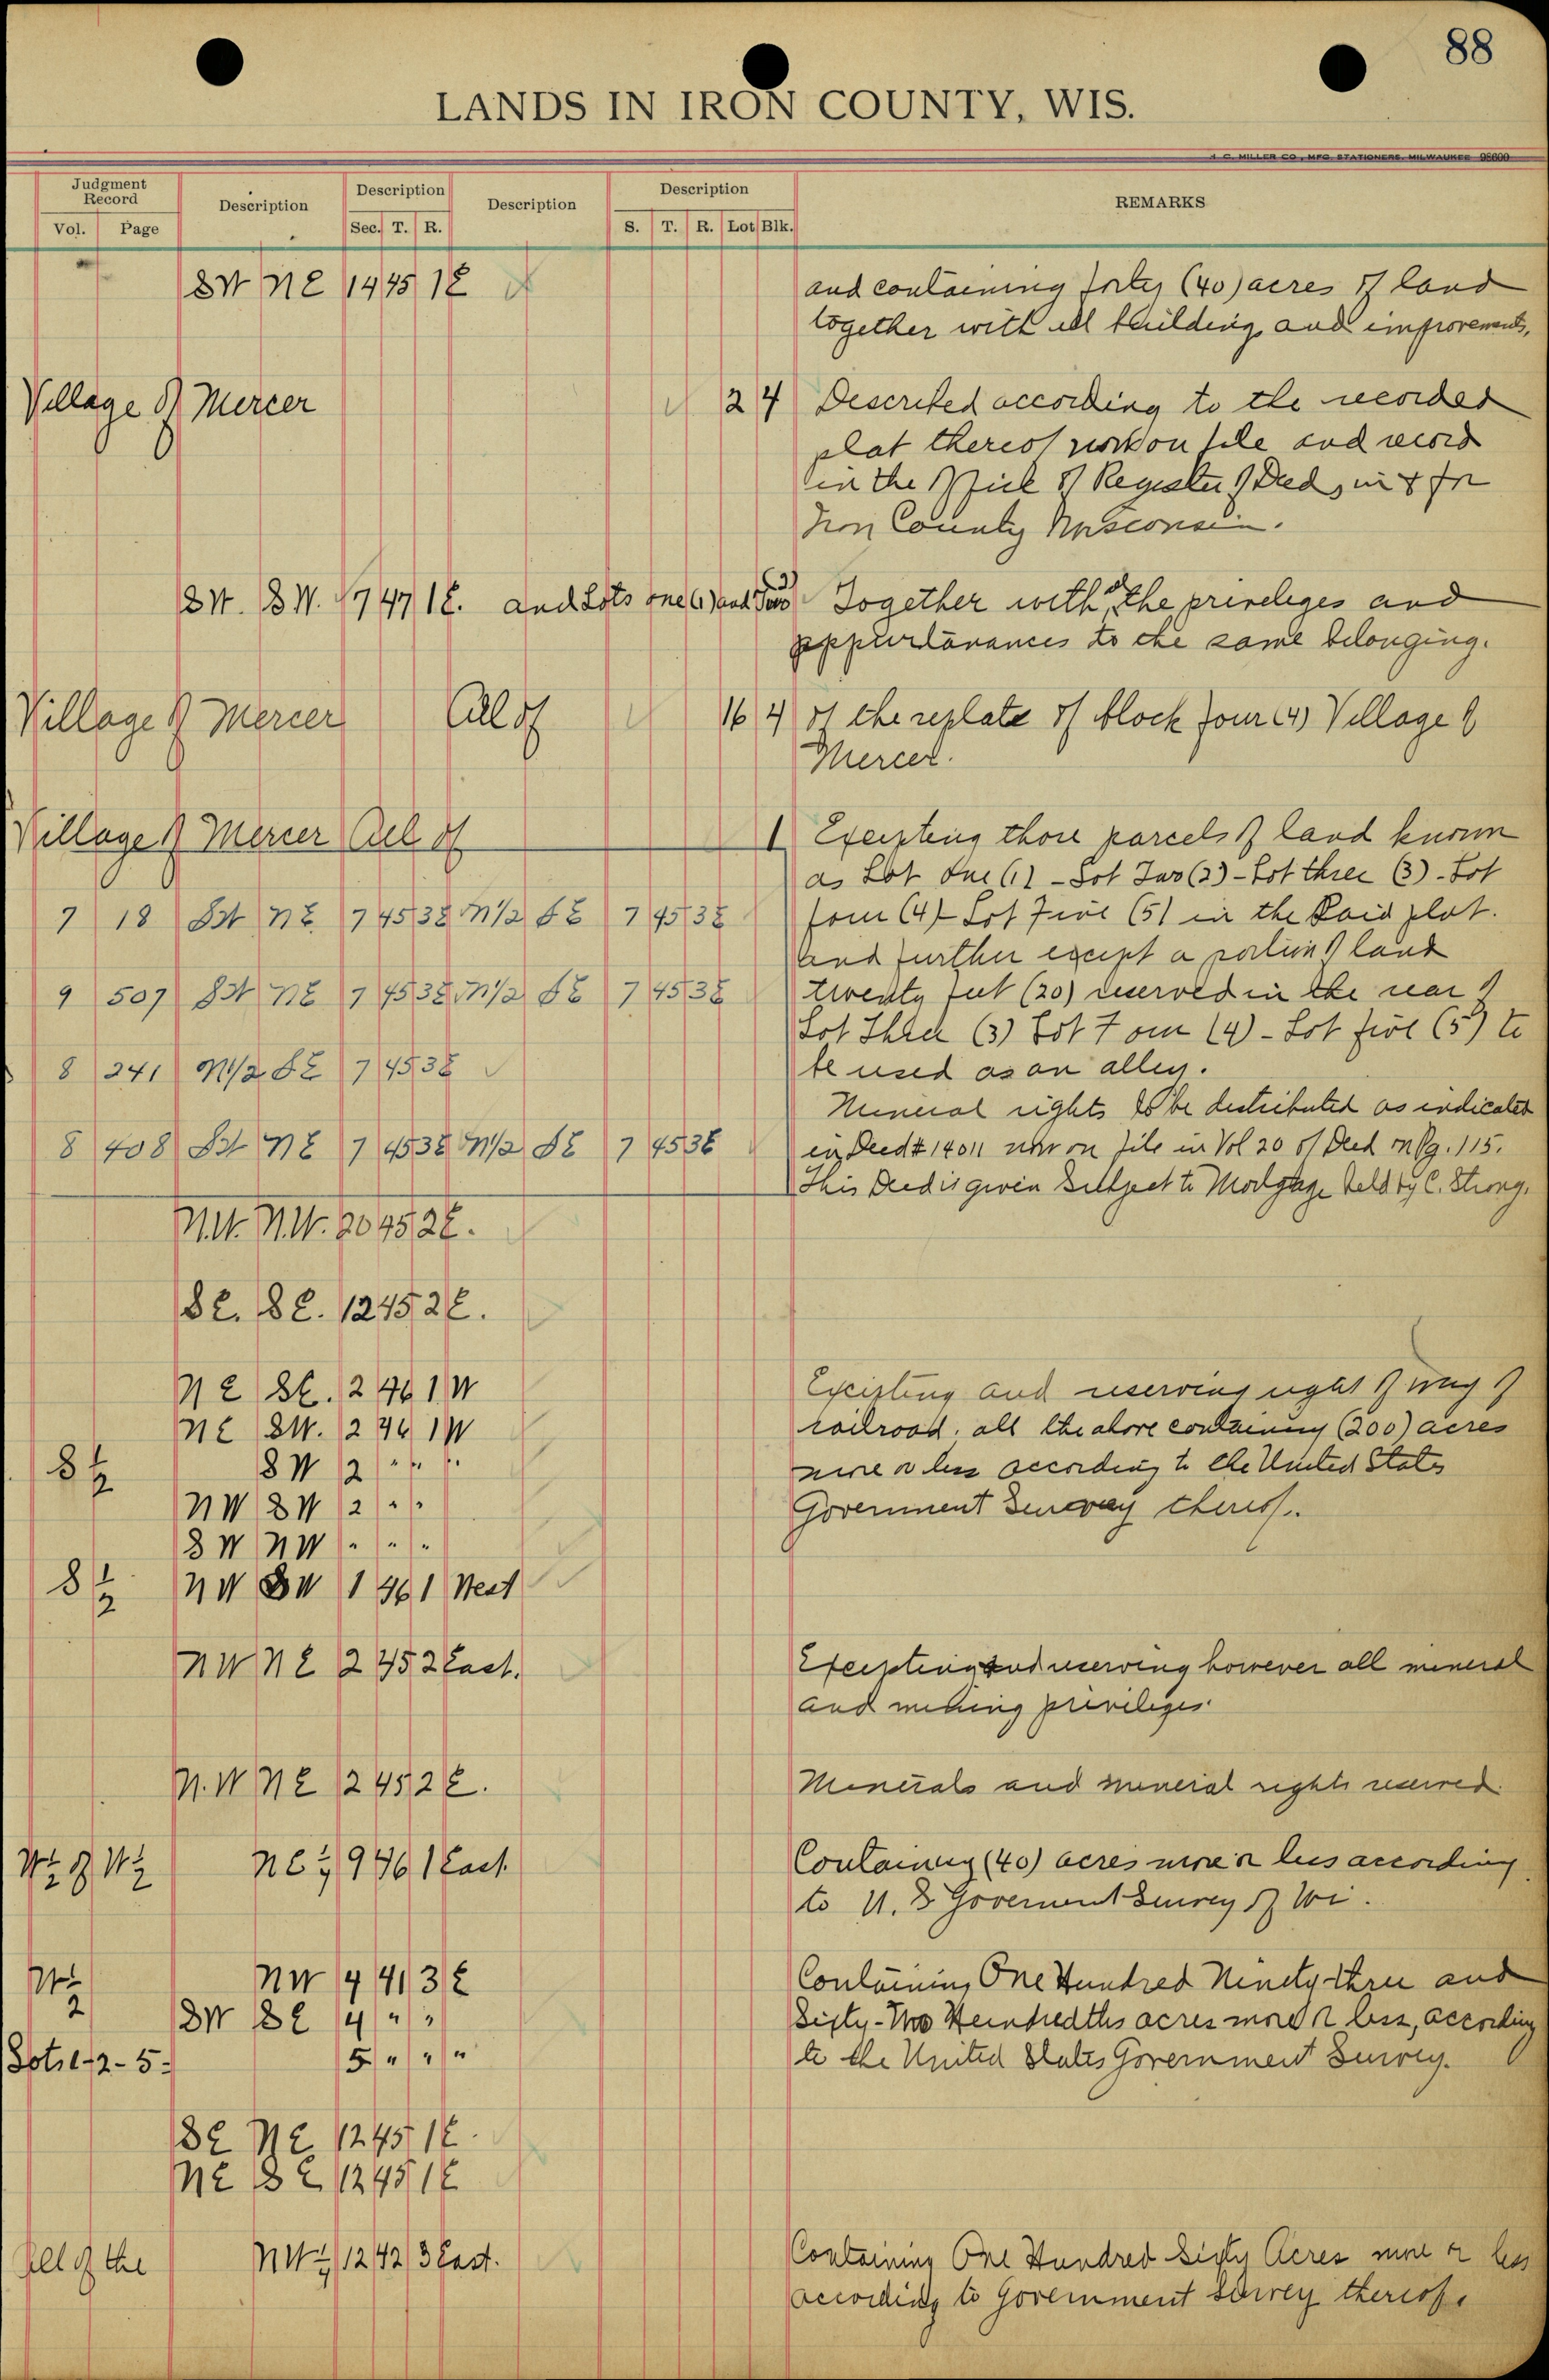 88
LANDS IN IRON COUNTY, WIS.
H. C. MILLER CO., MFG. STATIONERS, MILWAUKEE 98600
Judgment Record Description Description Description Description REMARKS
Vol. Page Sec. T. R. S. T. R. Lot Blk.
SW NE 14 45 1E and containing forty (40) acres of land
together with all buildings and improvements,
Village of Mercer 2 4 Described according to the recorded
plat thereof now on file and record
in the Office of Register of Deeds in & for
Iron County Wisconsin.
SW. SW. 17 47 1E. and Lots one (1) and Two (2) Together with all the privileges and
appurtanances to the same belonging.
Village of Mercer All of 16 4 of the replate of block four (4) Village of
Mercer.
Village of Mercer All of 1 Excepting those parcels of land known
as Lot One (1) - Lot Two (2) - Lot three (3) - Lot
7 18 SW NE 7 45 3E N1/2 SE 7 45 3E four (4) - Lot Five (5) in the said plat.
And further except a portion of land
9 507 SW NE 7 45 3E N1/2 SE 7 45 3E twenty feet (20) reserved in the rear of
Lot Three (3) Lot Four (4) - Lot five (5) to
8 241 N1/2 SE 7 45 3E be used as an alley.
Mineral rights to be distributed as indicated
8 408 SW NE 7 45 3E N1/2 SE 7 45 3E in Deed # 14011 now on file in Vol 20 of Deed on Pg. 115.
This Deed is given Subject to Mortgage held by C. Strong.
N.W. N.W. 20 45 2E.
SE. SE. 12 45 2E.
NE SE. 2 46 1W Excepting and reserving right of way of
NE SW. 2 46 1W railroad. all the above containing (200) acres
S 1/2 SW 2 " " " more or less according to the United States
NW SW 2 " " Government Survay thereof.
SW NW " " "
S 1/2 NW SW 1 46 1 West
NW NE 2 45 2 East. Excepting and reserving however all mineral
and mining privileges
N.W NE 2 45 2E. Minerals and mineral rights reserved.
W 1/2 of W 1/2 NE 1/4 9 46 1 East Containing (40) acres more or less according
to U. S Goverment Survey of Wi.
N 1/2 NW 4 41 3E Containing One Hundred Ninety-three and
SW SE 4 " " Sixty-Two Hundredths acres more or less, according
Lots 1-2-5- 5 " " " to the United States Government Survey.
SE NE 12 45 1E.
NE SE 12 45 1E
All of the NW 1/4 12 42 3 East. Containing One Hundred Sixty Acres more or less
according to Government survey thereof.